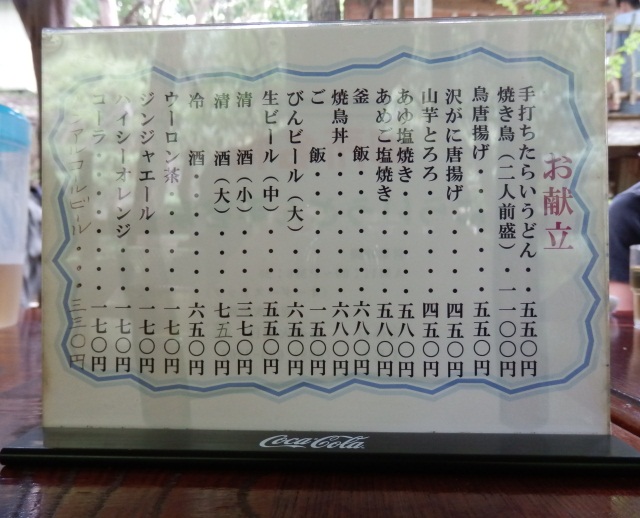 お献立
手打ちたらいうどん・・五五〇円
焼き鳥(二人前盛)・一一〇〇円
鳥唐揚げ・・・・・・五五〇円
沢がに唐揚げ・・・・四五〇円
山芋とろろ・・・・・四五〇円
あゆ塩焼き・・・・・五八〇円
あめご塩焼き・・・・五八〇円
釜飯・・・・・・・六八〇円
焼鳥丼・・・・・・・六八〇円
ご飯・・・・・・・一五〇円
びんビール(大)・・・六五〇円
生ビール(中)・・・・五五〇円
清酒(小)・・・・三七〇円
清酒(大)・・・・七五〇円
冷酒・・・・・・・六五〇円
ウーロン茶・・・・・一七〇円
ジンジャエール・・・・一七〇円
ハイシーオレンジ・・・一七〇円
コーラ・・・・・・・一七〇円
ノンアルコールビール・・・三三〇円
Coca-Cola